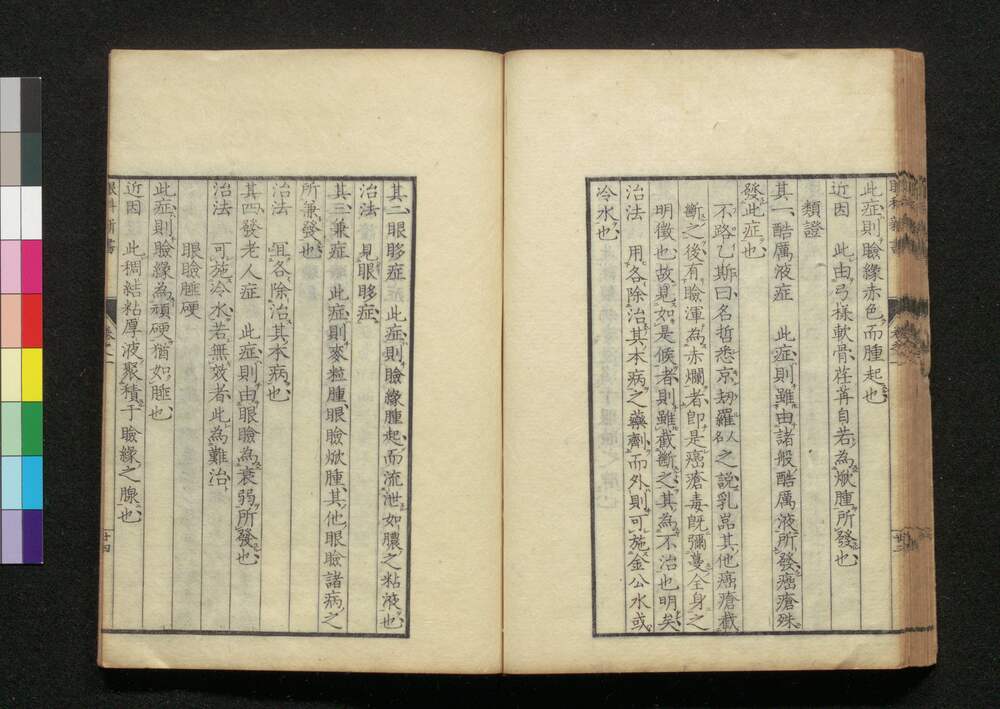 此症則瞼緣赤色而腫起也
近因　此由弓樣軟骨荏苒自若為焮腫所發也
類證
其一酷厲液症　此症則雖由諸般酷厲液所發癌瘡殊
發此症也
不路乙斯曰名哲悉京刼羅人名之說乳嵓其他癌瘡截
斷之後有瞼渾為赤爛者卽是癌瘡毒旣彌蔓全身之
明徵也故見如是候者則雖截斷之其為不治也明矣
治法　用各除治其本病之藥劑而外則可施金公水或
冷水也
眼科新書
卷之一
廿三
其二眼眵症　此症則瞼緣腫起而流泄如膿之粘液也
治法　見眼眵症
其三兼症　此症則麥粒腫眼瞼焮腫其他眼瞼諸病之
所兼發也
治法　宜各除治其本病也
其四發老人症　此症則由眼瞼為衰弱所發也
治法　可施冷水若無效者此為難治
眼瞼胝硬
此症則瞼緣為頑硬猶如胝也
近因　此稠結粘厚液聚積于瞼緣之腺也
眼科新書
卷之一
廿四